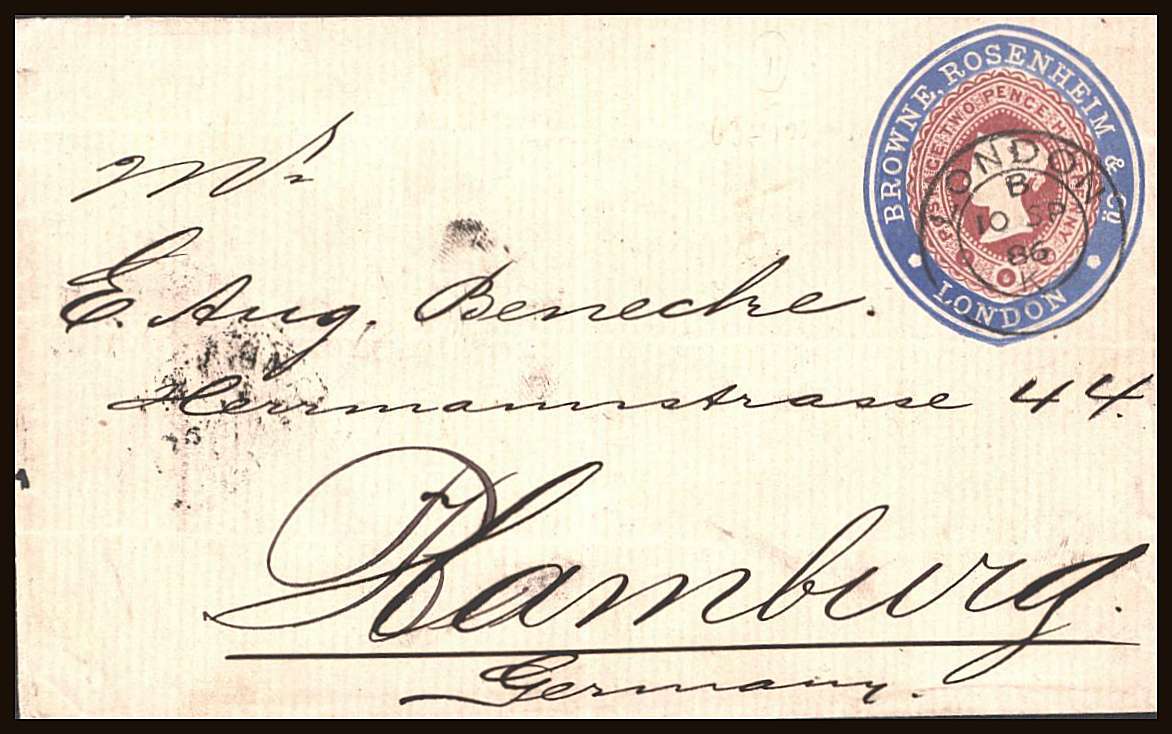 BROWNE, ROSENHEIM & Co.
LONDON
TWO PENCE
LONDON
B
10 SP
86
K
Mr
E. Aug. Benecke.
Herrmannstrasse 44.
Hamburg.
Germany.